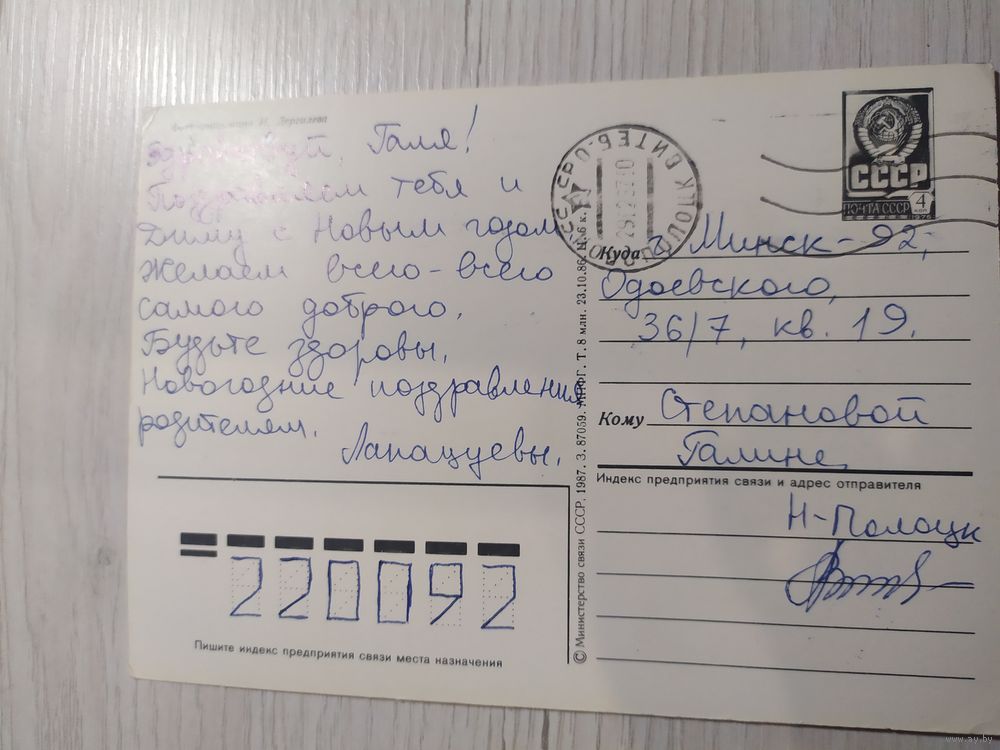 Здравствуй, Галя!
Поздравляем тебя и
Диму с Новым годом
Желаем всего-всего
самого доброго.
Будьте здоровы.
Новогодние поздравления
родителям.
Лапацуевы.
220092
Пишите индекс предприятия связи места назначения
© Министерство связи СССР, 1987. З. 87059. МПФГ. Т. 8 млн. 23.10.86. Ц. 6 к.
СССР
ПОЧТА СССР 4
Куда г. Минск-92,
Одоевского,
36/7, кв. 19.
Кому Степановой
Галине
Индекс предприятия связи и адрес отправителя
Н-Полоцк
www.ay.by